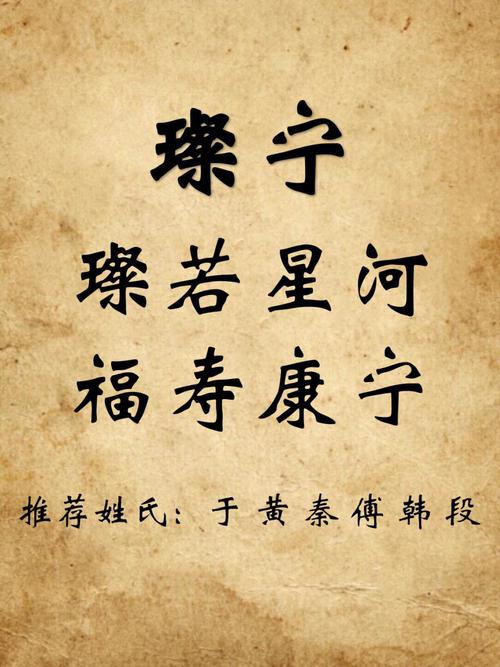 璨宁
璨若星河
福寿康宁
推荐姓氏：于黄秦傅韩段